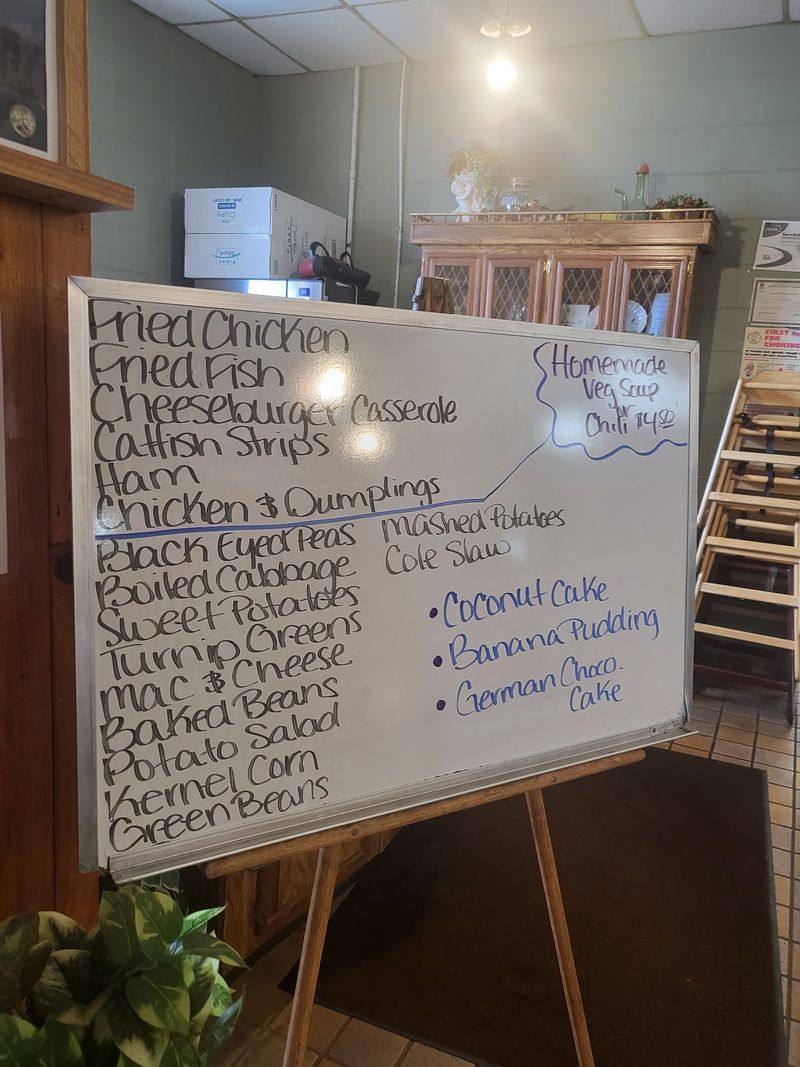 Fried Chicken
Fried Fish
Cheeseburger Casserole
Catfish Strips
Ham
Chicken & Dumplings
Homemade
Veg Soup
or
Chili $4.50
Black Eyed Peas
Boiled Cabbage
Sweet Potatoes
Turnip Greens
Mac & Cheese
Baked Beans
Potato Salad
Kernel Corn
Green Beans
Mashed Potatoes
Cole Slaw
• Coconut Cake
• Banana Pudding
• German Choco.
Cake
CUPS
FIRST
FOR
CHOKING